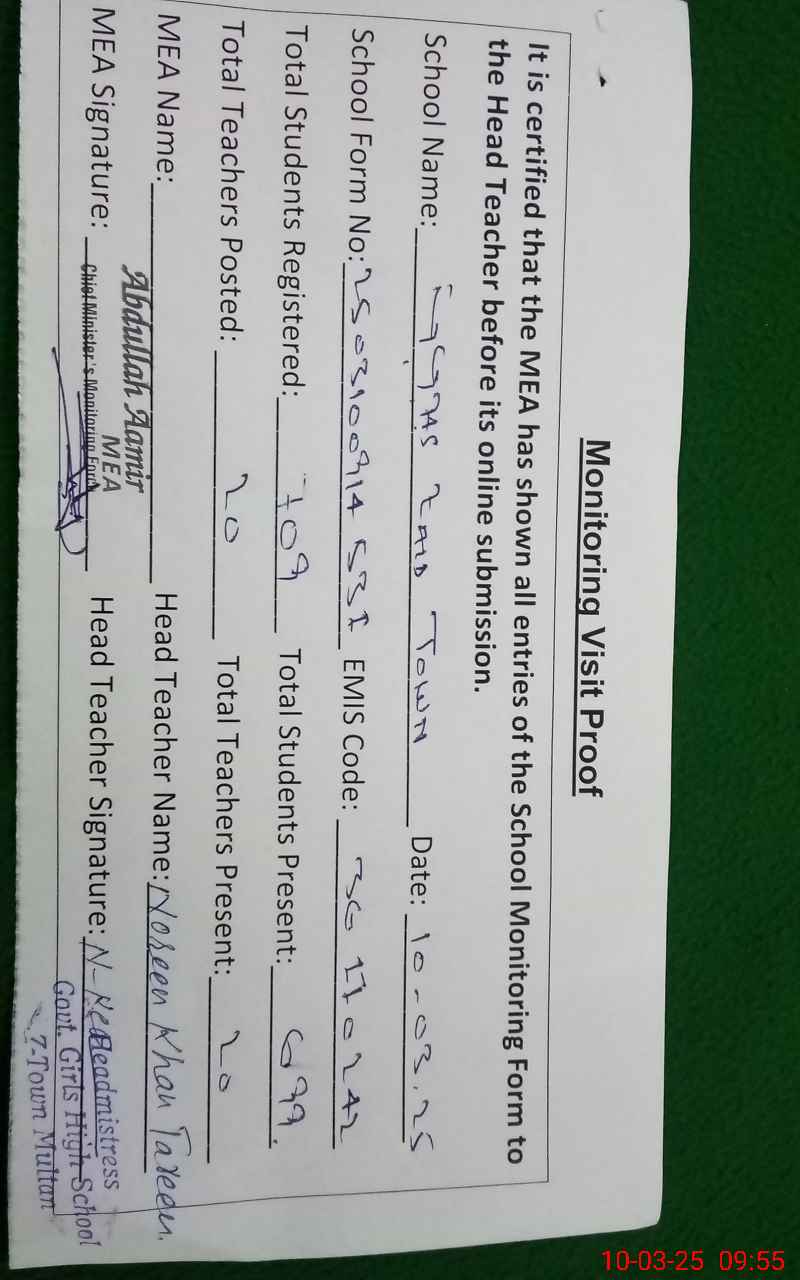 Monitoring Visit Proof
It is certified that the MEA has shown all entries of the School Monitoring Form to
the Head Teacher before its online submission.
School Name: ZAID TOWN Date: 10-03.25
School Form No: EMIS Code:
Total Students Registered: 709 Total Students Present: 699.
Total Teachers Posted: 20 Total Teachers Present: 20
MEA Name: Abdullah Aamir Head Teacher Name: Noreen Khan Tareen.
MEA
MEA Signature: Chief Minister's Monitoring Force Head Teacher Signature: Headmistress
Govt. Girls High School
7-Town Multan
10-03-25 09:55